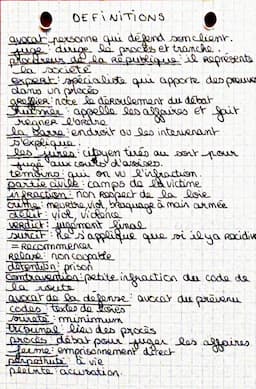 DEFINITIONS
avocat : personne qui défend son client.
juge : dirige le procès et tranche.
procureur de la république : il représente
la société
expert : spécialiste qui apporte des preuves
dans un procès
greffier : note le déroulement du débat
huissier : appelle les affaires et fait
régner l'ordre.
la barre : endroit où les intervenant
s'explique.
les jurés : citoyen tirés au sort pour
jugé aux cours d'assises.
témoins : qui on vu l'infraction.
partie civile : camps de la victime
infraction : non respect de la loie
crime : meurtre, viol, braquage à main armée
délit : viol, violence
verdict : jugement final
sursit : ne s'applique que si il y a récidive
= Recommencer
relaxe : non coupable
détention : prison
contravention : petite infraction du code de
la route
avocat de la défense : avocat du prévenu
codes : textes de lois
sureté : minimum
tribunal : lieu des procès
procès : débat pour juger les affaires
ferme : emprisonnement direct
perpétuité : à vie
plainte : accusation.